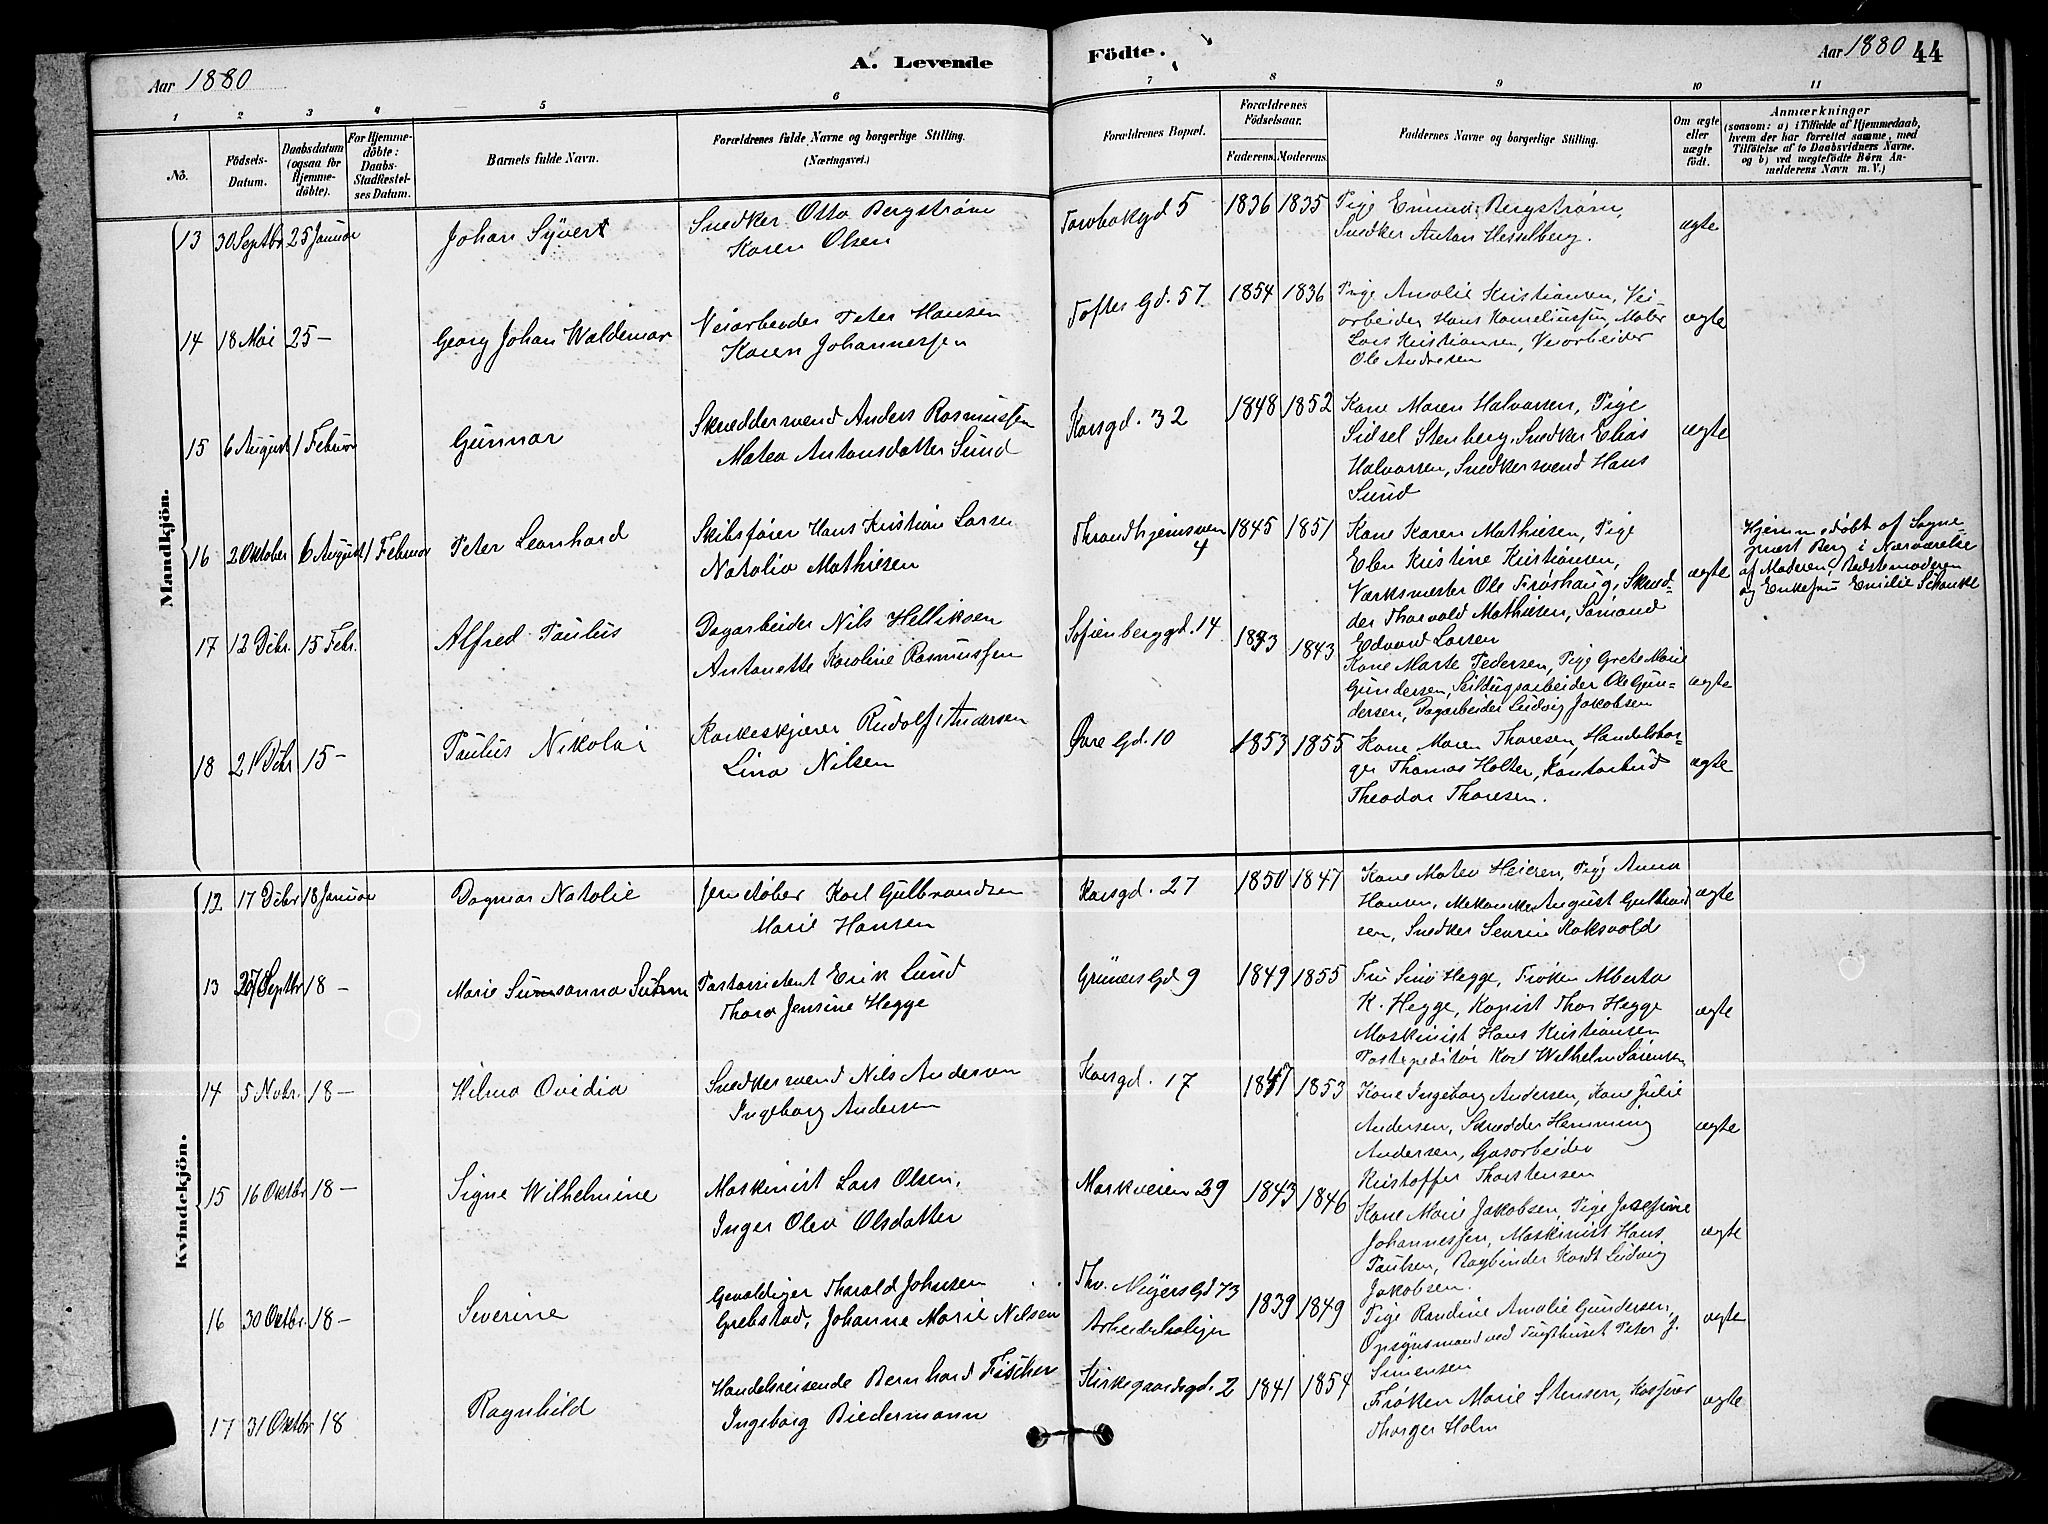 Aar 1880
A. Levende
Födte.
Aar 1880 44
1 2 3 4 5 6 7 8 9 10 11
Nö.
Födsels-Datum.
Daabsdatum (ogsaa för Hjemme-döbte).
For Hjemme-döbte: Daabs-Stadfæstelses Datum.
Barnets fulde Navn.
Forældrenes fulde Navne og borgerlige Stilling.
(Næringsvei.)
Forældrenes Bopæl.
Forældrenes Födselsaar.
Faderens. Moderens.
Faddernes Navne og borgerlige Stilling.
Om ægte eller uægte födt.
Anmærkninger
(saasom: a) i Tilfælde af Hjemmedaab, hvem der har forrettet samme, med Tilföielse af to Daabsvidners Navne. og b) ved uægtefödte Börn Anmelderens Navn m. V.)
Mandkjön.
13 30 Septbr 25 Januar Johan Syvert
Snedker Otto Bergstrøm
Karen Olsen
Torvbakgd 5 1836 1835
Pige Emma Bergstrøm,
Snedker Anton Hesselberg.
ægte
14 18 Mai 25 – Georg Johan Waldemar
Veiarbeider Peter Hansen
Karen Johannessen
Toftes Gd. 57 1854 1836
Pige Amalie Kristiansen, Vei-
arbeider Hans Korneliussen, Maler
Lars Kristiansen, Veiarbeider
Ole Andresen
ægte
15 6 August 1 Februar Gunnar
Skræddersvend Anders Rasmussen
Matea Antonsdatter Sund
Korsgd. 32 1848 1852
Kone Maren Halvorsen, Pige
Sidsel Stenberg, Snedker Elias
Halvorsen, Snedkersvend Hans
Sund
ægte
16 2 Oktober 6 August 1 Februar Peter Leonhard
Skibsfører Hans Kristian Larsen
Natalia Mathisen
Throndhjemsvein 4 1845 1851
Kone Karen Mathiesen, Pige
Elen Kristine Kristiansen,
Værksmester Ole Frøshaug, Skræd-
der Thorvald Mathiesen, Sømand
Edvard Larsen
ægte
Hjemmedøbt af Sogne-
præst Berg i Nærværelse
af Moderen, Bedstemoderen
og Enkefru Emilie Schanke
17 12 Dcbr. 15 Febr. Alfred Paulus
Dagarbeider Nils Helliksen
Antonette Karoline Rasmussen
Sofienberggd. 14 1843 1843
Kone Marte Pedersen, Pige Grete Marie
Gundersen, Seildugsarbeider Ole Gun-
dersen, Dagarbeider Ludvig Jakobsen
ægte
18 21 Dcbr 15 – Paulus Nikolai
Korkeskjærer Rudolf Andersen
Lina Nilsen
Øvre Gd. 10 1853 1855
Kone Maren Thoresen, Handelsbor-
ger Thomas Holter, Kontorbud
Theodor Thoresen.
ægte
Kvindekjön.
12 17 Dcbr 18 Januar Dagmar Natalie
Jernstøber Karl Gulbrandsen
Marie Hansen
Korsgd. 27 1850 1847
Kone Matea Heieren, Pige Anna
Hansen, Mekaniker August Gulbrand-
sen, Snedker Severin Koksvold
ægte
13 27 Septbr 18 – Marie Susanna Suhm
Postassistent Erik Lund
Thora Jensine Hegge
Grüners Gd 9 1849 1855
Fru Sina Hegge, Frøken Alberta
K. Hegge, Kopist Thor Hegge
Maskinist Hans Kristiansen
Postexpeditør Karl Wilhelm Sørensen
ægte
14 5 Novbr. 18 – Hilma Ovidia
Snedkersvend Nils Andersen
Ingeborg Andersen
Korsgd. 17 1847 1853
Kone Ingeborg Andersen, Kone Julie
Andersen, Skrædder Hemming
Andersen, Gasarbeider
Kristoffer Thorstensen
ægte
15 16 Oktbr 18 – Signe Wilhelmine
Maskinist Lars Olsen,
Inger Olea Olsdatter
Markveien 29 1843 1846
Kone Marie Jakobsen, Pige Josefine
Johannessen, Maskinist Hans
Paulsen, Bogbinder Kordt Ludvig
Jakobsen.
ægte
16 30 Oktbr. 18 – Severine
Gevaldiger Tharald Johnsen
Grebstad, Johanne Marie Nilsen
Thv. Meyers Gd 73
Arbeiderboliger 1839 1849
Pige Randine Amalie Gundersen,
Opsynsmand ved Tugthuset Peter J.
Simensen
ægte
17 31 Oktbr 18 Ragnhild
Handelsreisende Bernhard Fischer
Ingeborg Biedermann
Kirkegaardsgd. 2 1841 1854
Frøken Marie Stensen, Kasserer
Thorger Holm
ægte